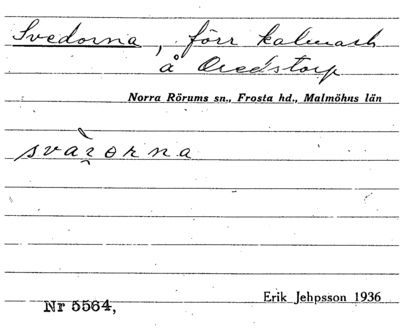 Svedorna, förr kalmark
å Oredstorp
Norra Rörums sn., Frosta hd., Malmöhns län
Nr 5564,
Erik Jehpsson 1936